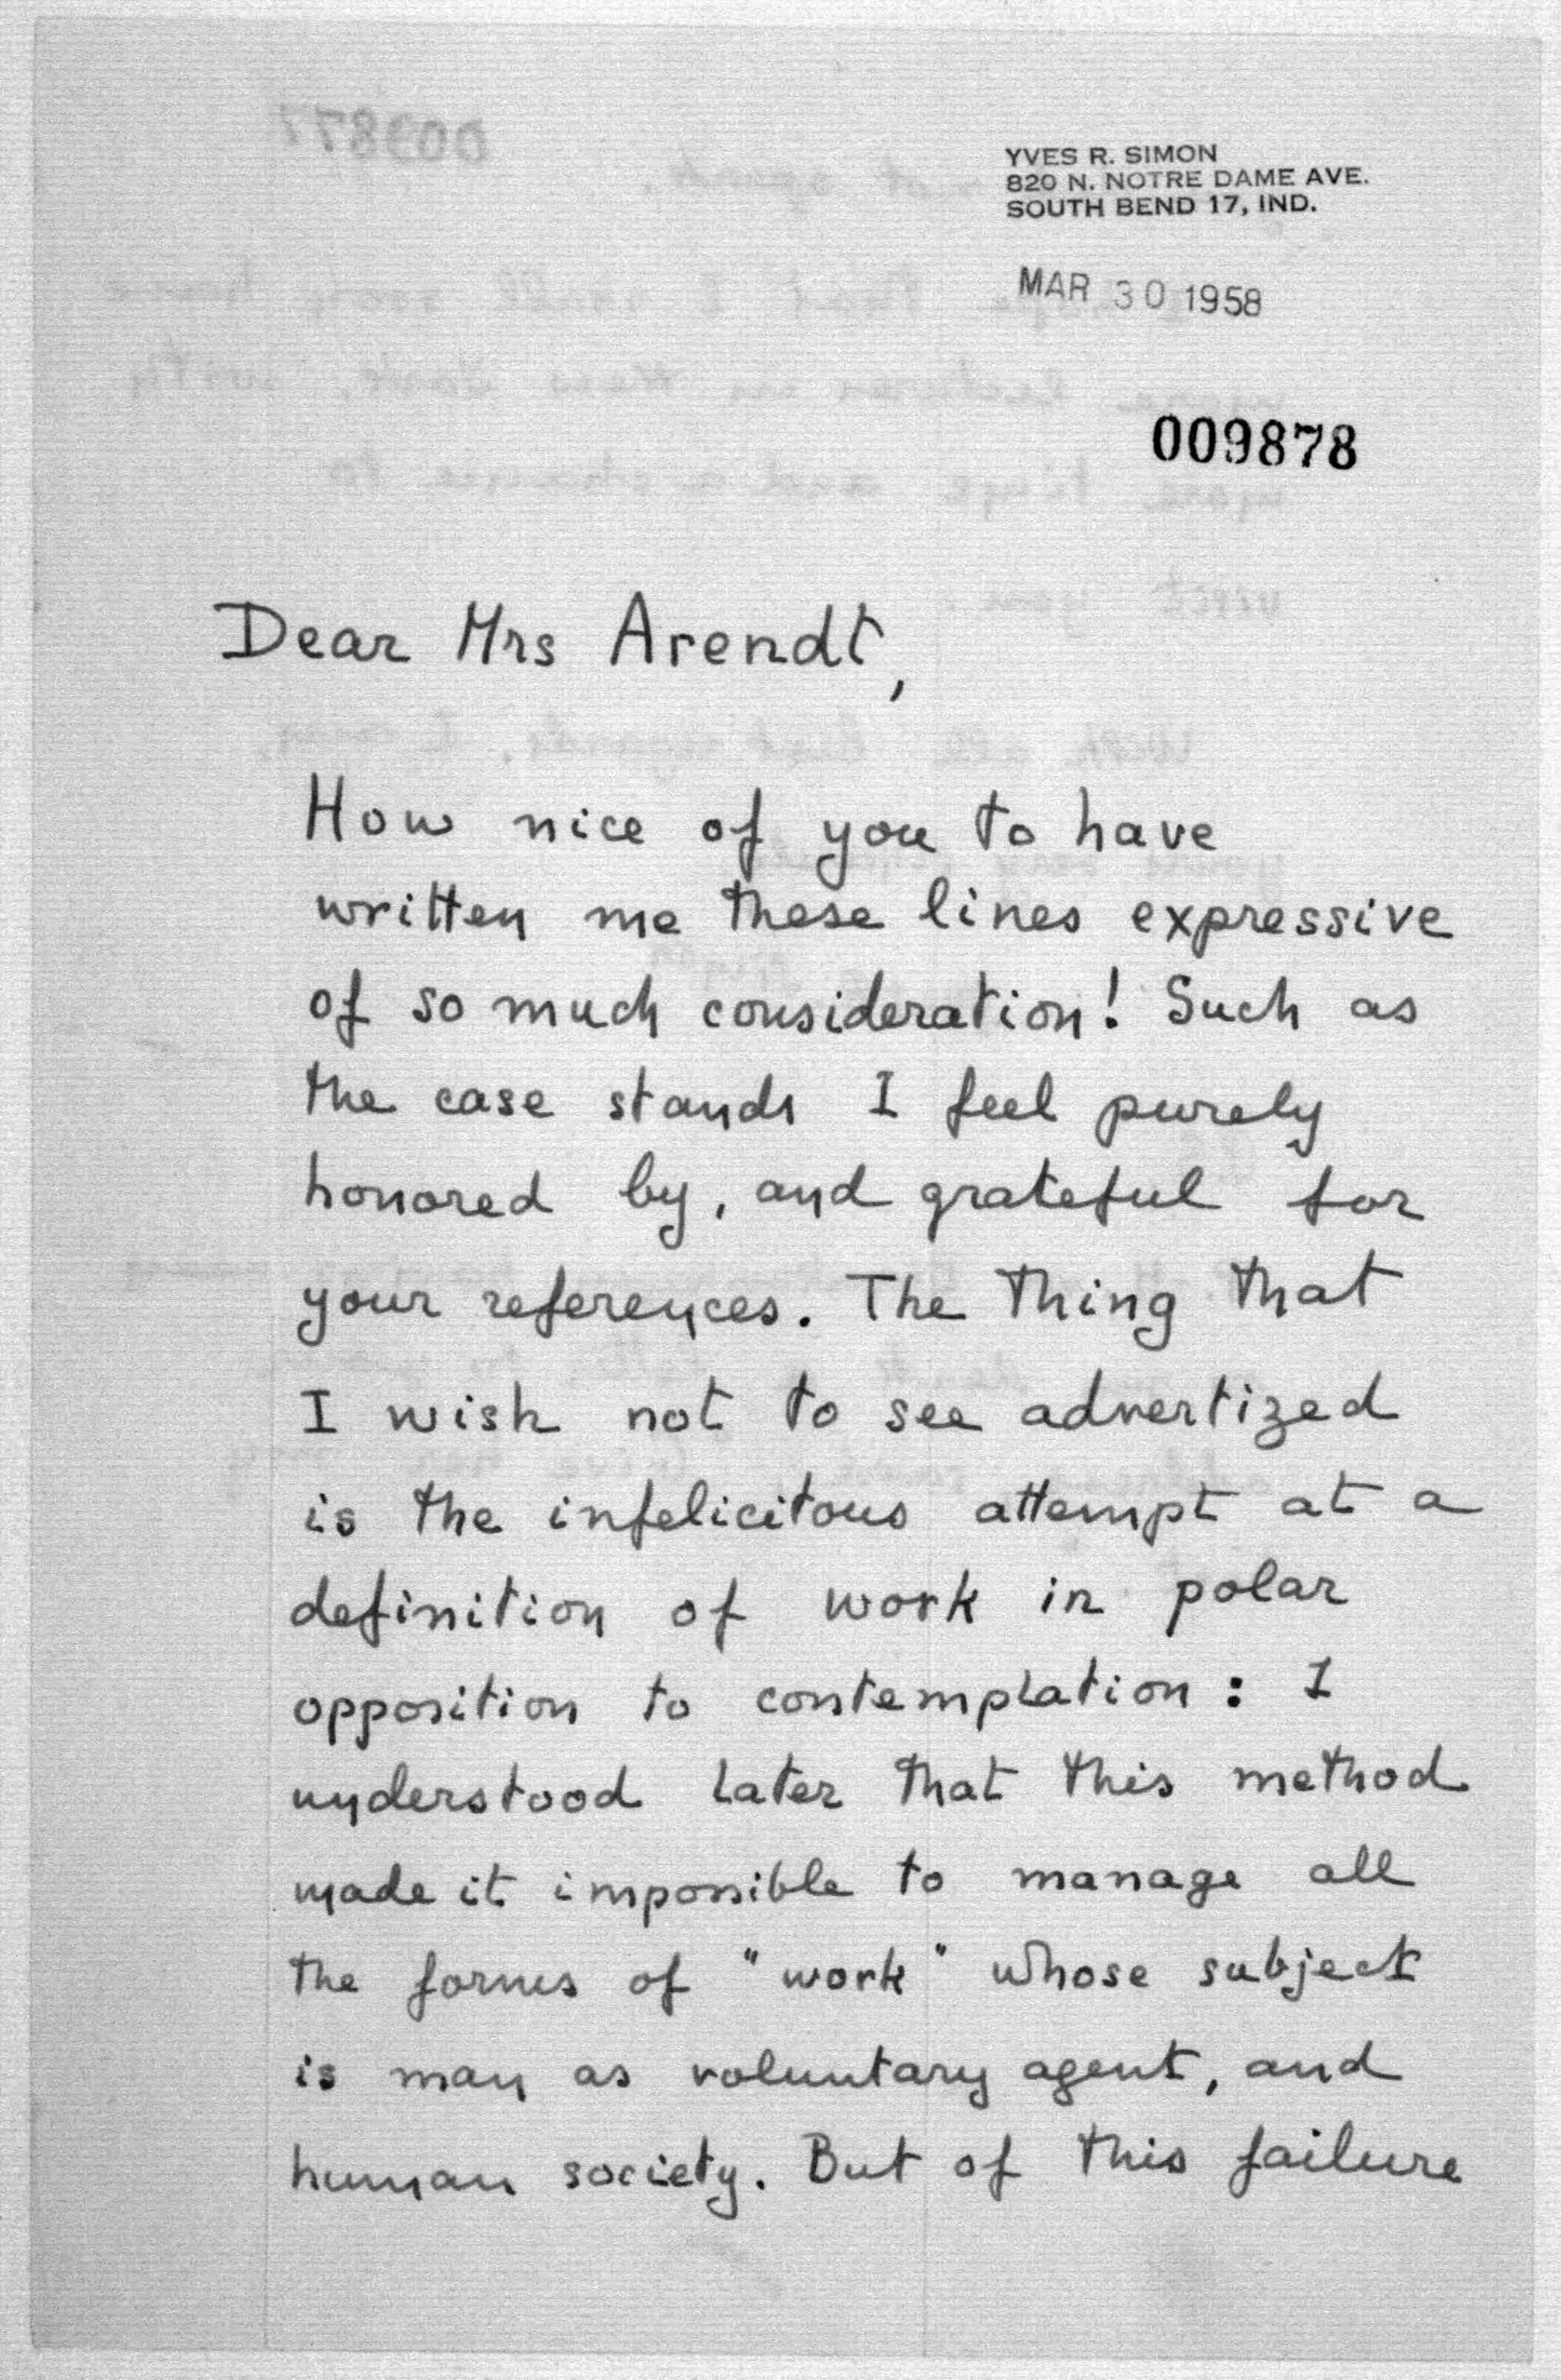 YVES R. SIMON
820 N. NOTRE DAME AVE.
SOUTH BEND 17, IND.
MAR 30 1958
009878
Dear Mrs Arendt,
How nice of you to have
written me these lines expressive
of so much consideration! Such as
the case stands I feel purely
honored by, and grateful for
your references. The thing that
I wish not to see advertized
is the infelicitous attempt at a
definition of work in polar
opposition to contemplation: I
understood later that this method
made it impossible to manage all
the forms of "work" whose subject
is man as voluntary agent, and
human society. But of this failure